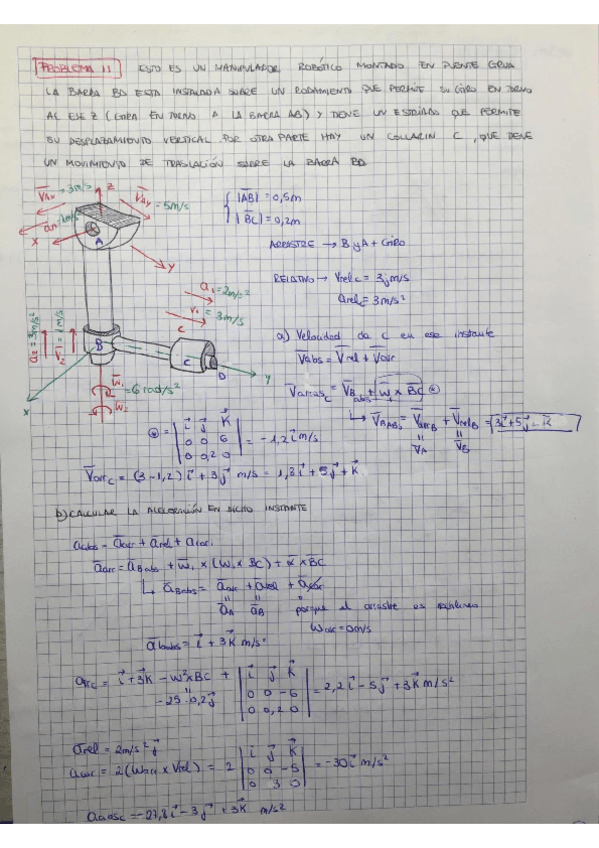 PROBLEMA 11 ESTO ES UN MANIPULADOR ROBÓTICO MONTADO EN PUENTE GRUA
LA BARRA BD ESTA INSTALADA SOBRE UN RODAMIENTO QUE PERMITE SU GIRO EN TORNO
AL EJE Z (GIRA EN TORNO A LA BARRA AB) Y TIENE UN ESTRIADO QUE PERMITE
SU DESPLAZAMIENTO VERTICAL. POR OTRA PARTE HAY UN COLLARIN C, QUE TIENE
UN MOVIMIENTO DE TRASLACIÓN SOBRE LA BARRA BD.
V̅Ax = 3m/s
Z
V̅Ay = 5m/s
X
A
Y
|A̅B̅| = 0,5m
|B̅C̅| = 0,2m
ARRASTRE → B y A + GIRO
RELATIVO → Vrel c = 3j m/s
arel c = 3 m/s²
a₁ = 2m/s²
v₁ = 3m/s
C
a₂ = 3m/s²
V̅₂ = 1m/s
B
C
D
Y
X
W̅₁ = 6 rad/s²
W̅₂
a) Velocidad de C en ese instante
V̅abs = V̅rel + V̅arr
V̅arras c = V̅B abs + W̅ × B̅C̅
↳ V̅BABS = V̅arrB + V̅relB = 3i + 5j + K
V̅A V̅B
= | i j K |
| 0 0 6 | = -1,2 i m/s
| 0 0,2 0 |
V̅arr c = (3 - 1,2) i + 3j m/s = 1,8 i + 5j + K
b) CALCULAR LA ACELERACIÓN EN DICHO INSTANTE
aabs = aarr + arel + acor
aarr = aB abs + W̅₁ × (W₁ × BC) + α × BC
↳ aBabs = aarr + arel + acor
aA aB porque el arrastre es rectilíneo
Warr = 0 m/s
aBabs = i + 3K m/s²
arr c = i + 3K - W² × BC + | i j K |
-25 · 0,2j | 0 0 -6 | = 2,2 i - 5j + 3K m/s²
| 0 0,2 0 |
arel = 2m/s² j
acor = 2(Warr × Vrel) = 2 | i j K |
| 0 0 -5 | = -30 i m/s²
| 0 3 0 |
aabs c = -27,8 i - 3j + 3K m/s²